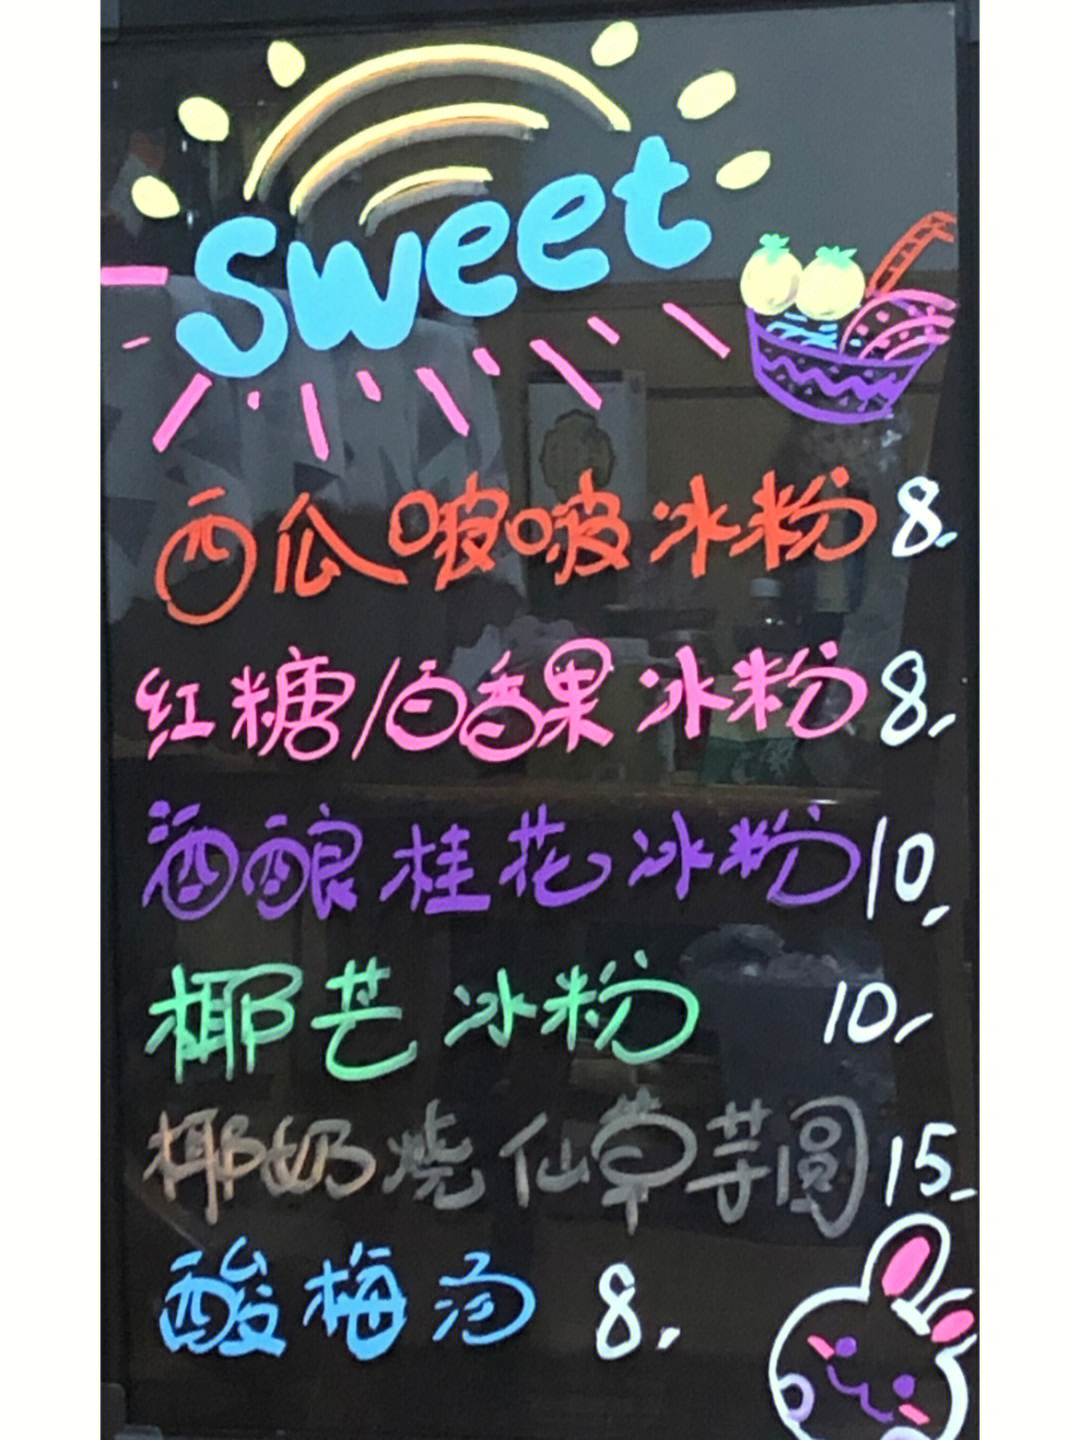 Sweet
西瓜啵啵冰粉 8.
红糖/百香果冰粉 8,
酒酿桂花冰粉 10,
椰芒冰粉 10,
椰奶烧仙草芋圆 15.
酸梅汤 8,